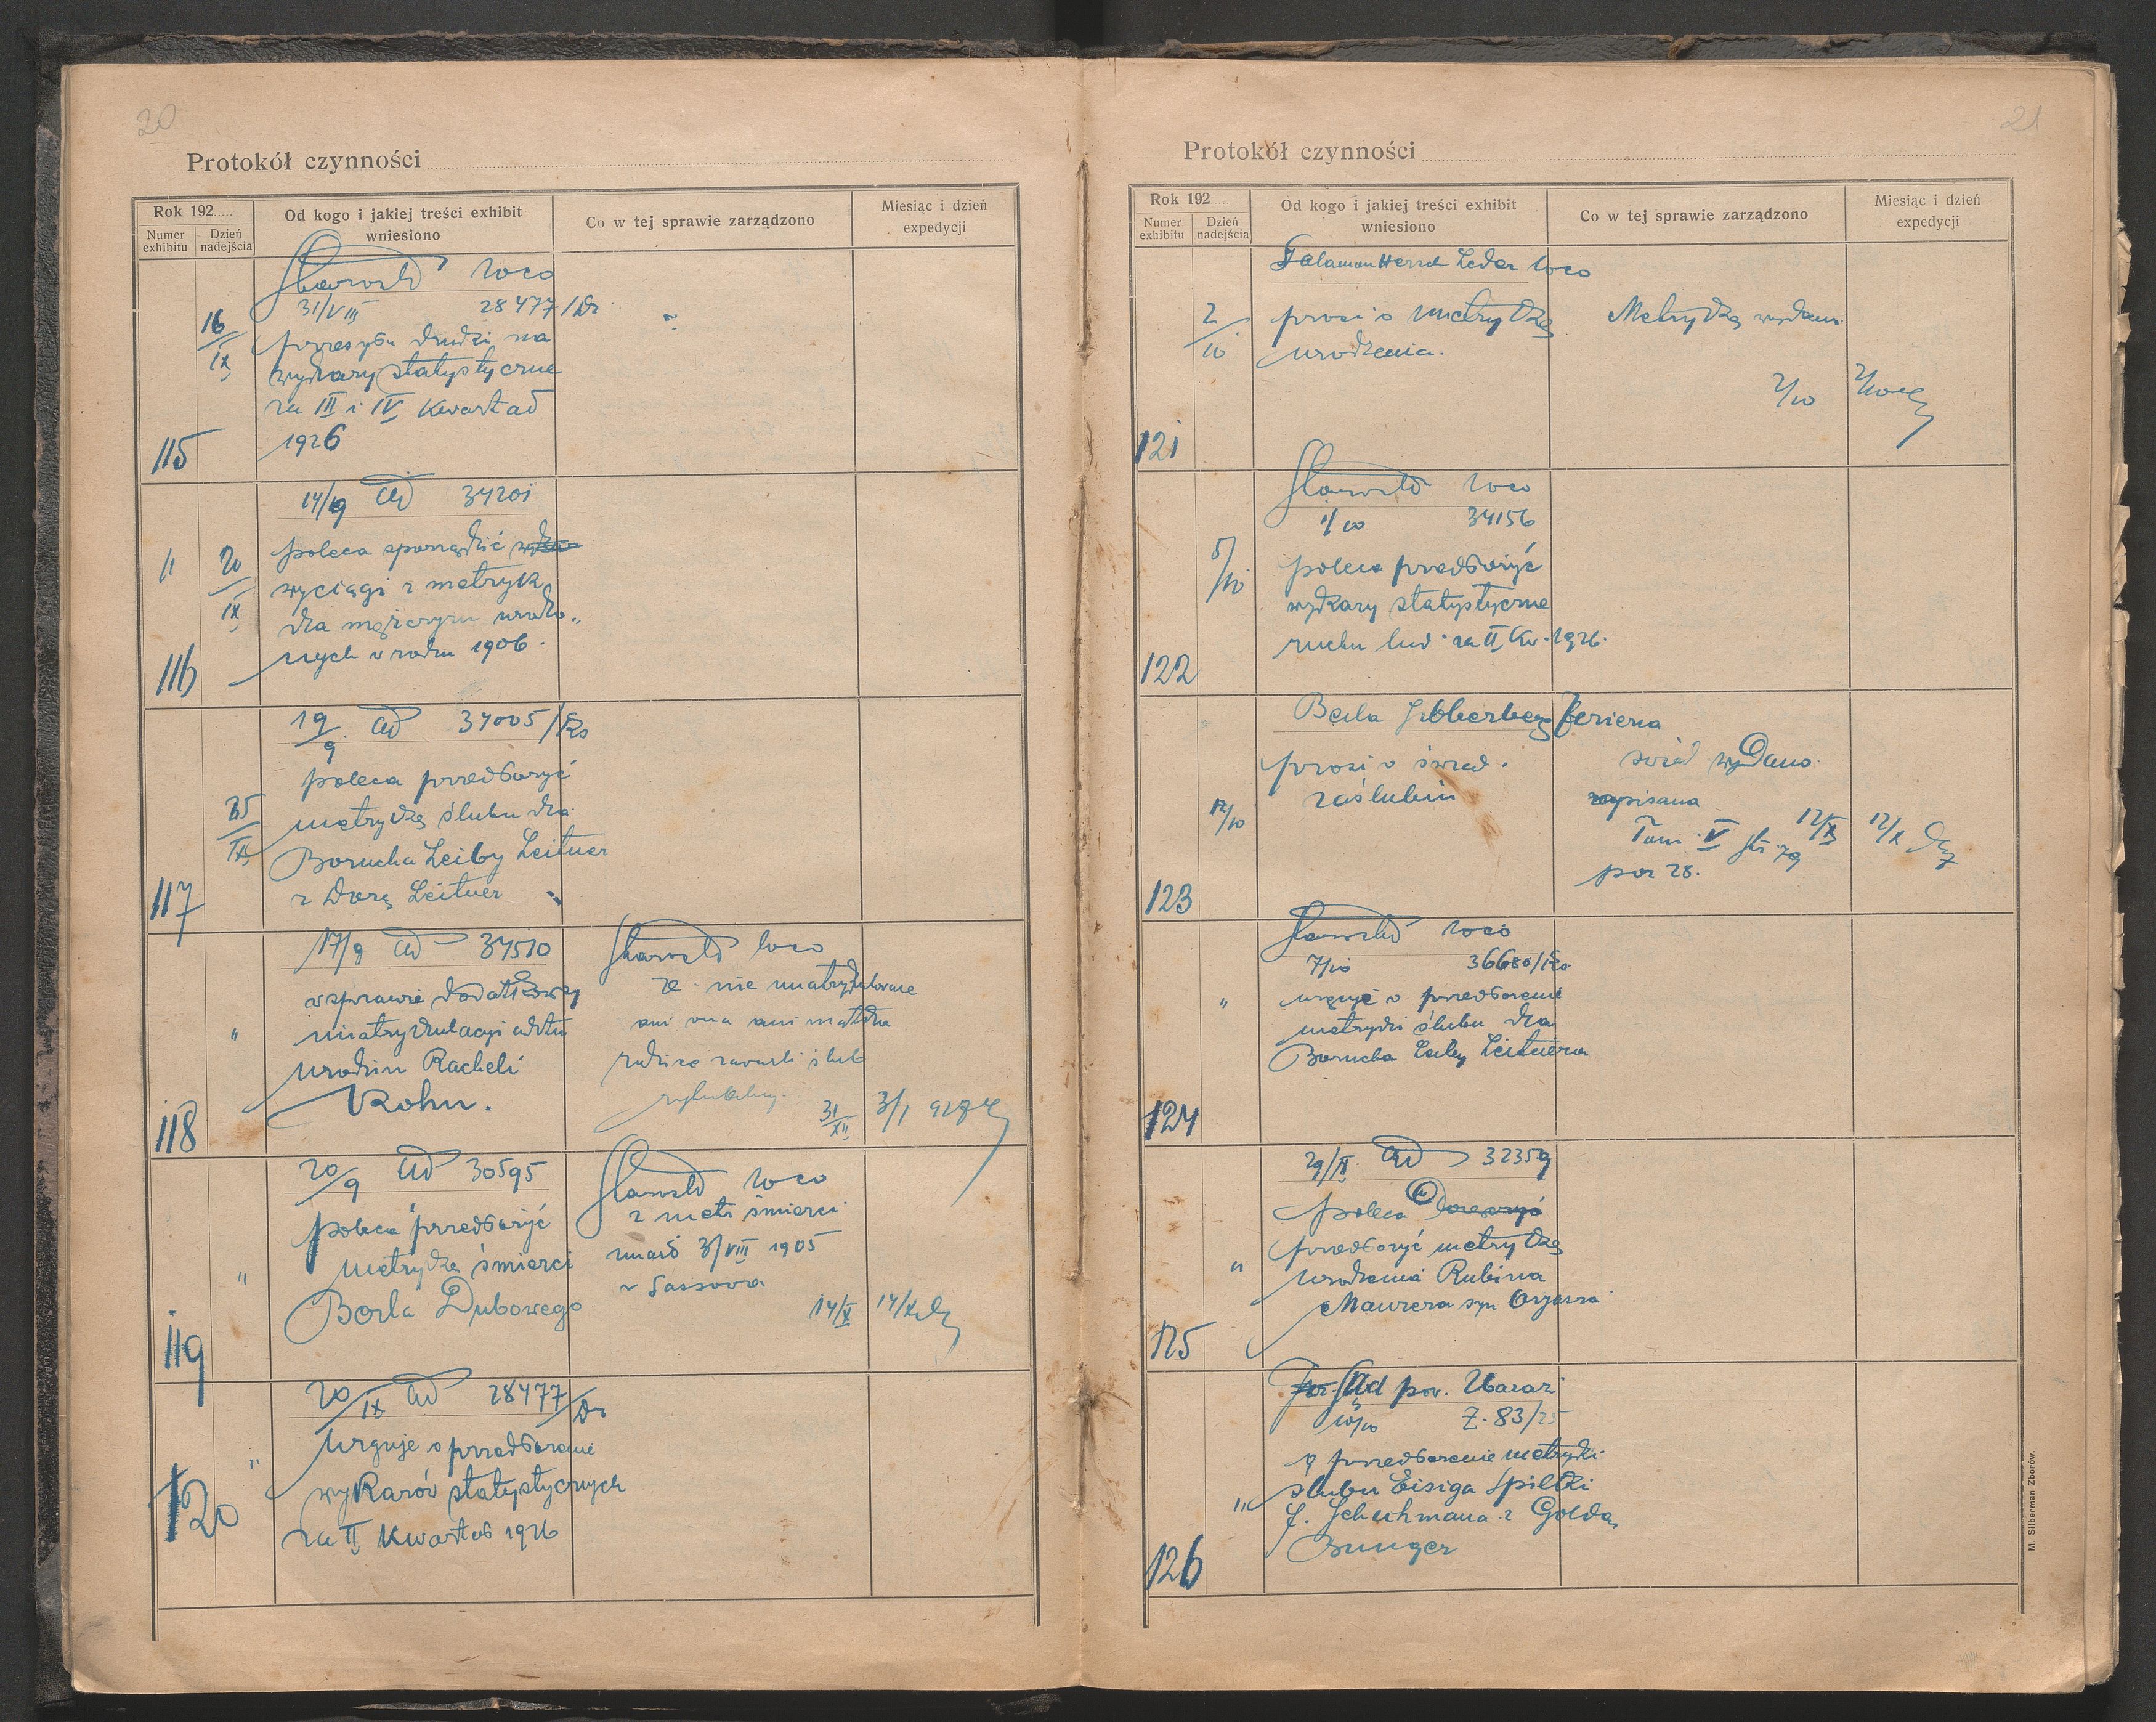 20
Protokół czynności
Rok 192
Numer exhibitu
Dzień nadejścia
Od kogo i jakiej treści exhibit wniesiono
Co w tej sprawie zarządzono
Miesiąc i dzień expedycji
loco
31/VIII 28477/Dr
16/IX
druki na
wykazy statystyczne
za III i IV Kwartał
115
1926
14/9 ad 34201
" 20/IX
poleca sporządzić
wyciągi z metryk
dla mężczyzn urodzo-
nych w roku 1906.
116
19/9 ad 34005/Ko
poleca przedłożyć
25/IX
metrykę ślubu dla
Borucha Leiby Leitner
z Dorą Leitner
117
17/9 ad 34510
w sprawie dodatkowej
"
imatrykulacji aktu
urodzin Racheli
Kohn.
118
loco
że nie imatrykulowane
ani ona ani matka
rodzice zawarli ślub
31/XII
3/I 927
20/9 ad 30595
poleca przedłożyć
metrykę śmierci
"
Berla Dubowego
119
loco
z metr śmierci
zmarł 3/VIII 1905
w Sassowa
14/X
14/X
20/IX ad 28477/Dr
urguje o przedłożenie
"
wykazów statystycznych
120
za II Kwartał 1926
21
Protokół czynności
Rok 192
Numer exhibitu
Dzień nadejścia
Od kogo i jakiej treści exhibit wniesiono
Co w tej sprawie zarządzono
Miesiąc i dzień expedycji
Hersch Leder loco
2/10
prosi o metrykę
urodzenia.
121
Metrykę wydano
2/10
loco
1/10 34156
5/10
poleca przedłożyć
wykazy statystyczne
ruchu lud. za II Kw. 1926.
122
Beila Silberberg Jezierna
prosi o świad.
zaślubin
12/10
123
świad wydano.
zapisana
Tom V str. 79
por 28.
12/X
12/X
loco
7/10 36680/Ko
"
urguje o przedłożenie
metryki ślubu dla
Borucha Leiby Leitnera
124
29/IX ad 32359
poleca
przedłożyć metrykę
"
urodzenia Rubina
Maurera syn
125
Sąd pow. Zbaraż
10/10 Z. 83/25
o przedłożenie metryki
ślubu Eisiga Spilki
"
f. Schuhmana z Goldą
Bunger
126
M. Silberman Zborów.